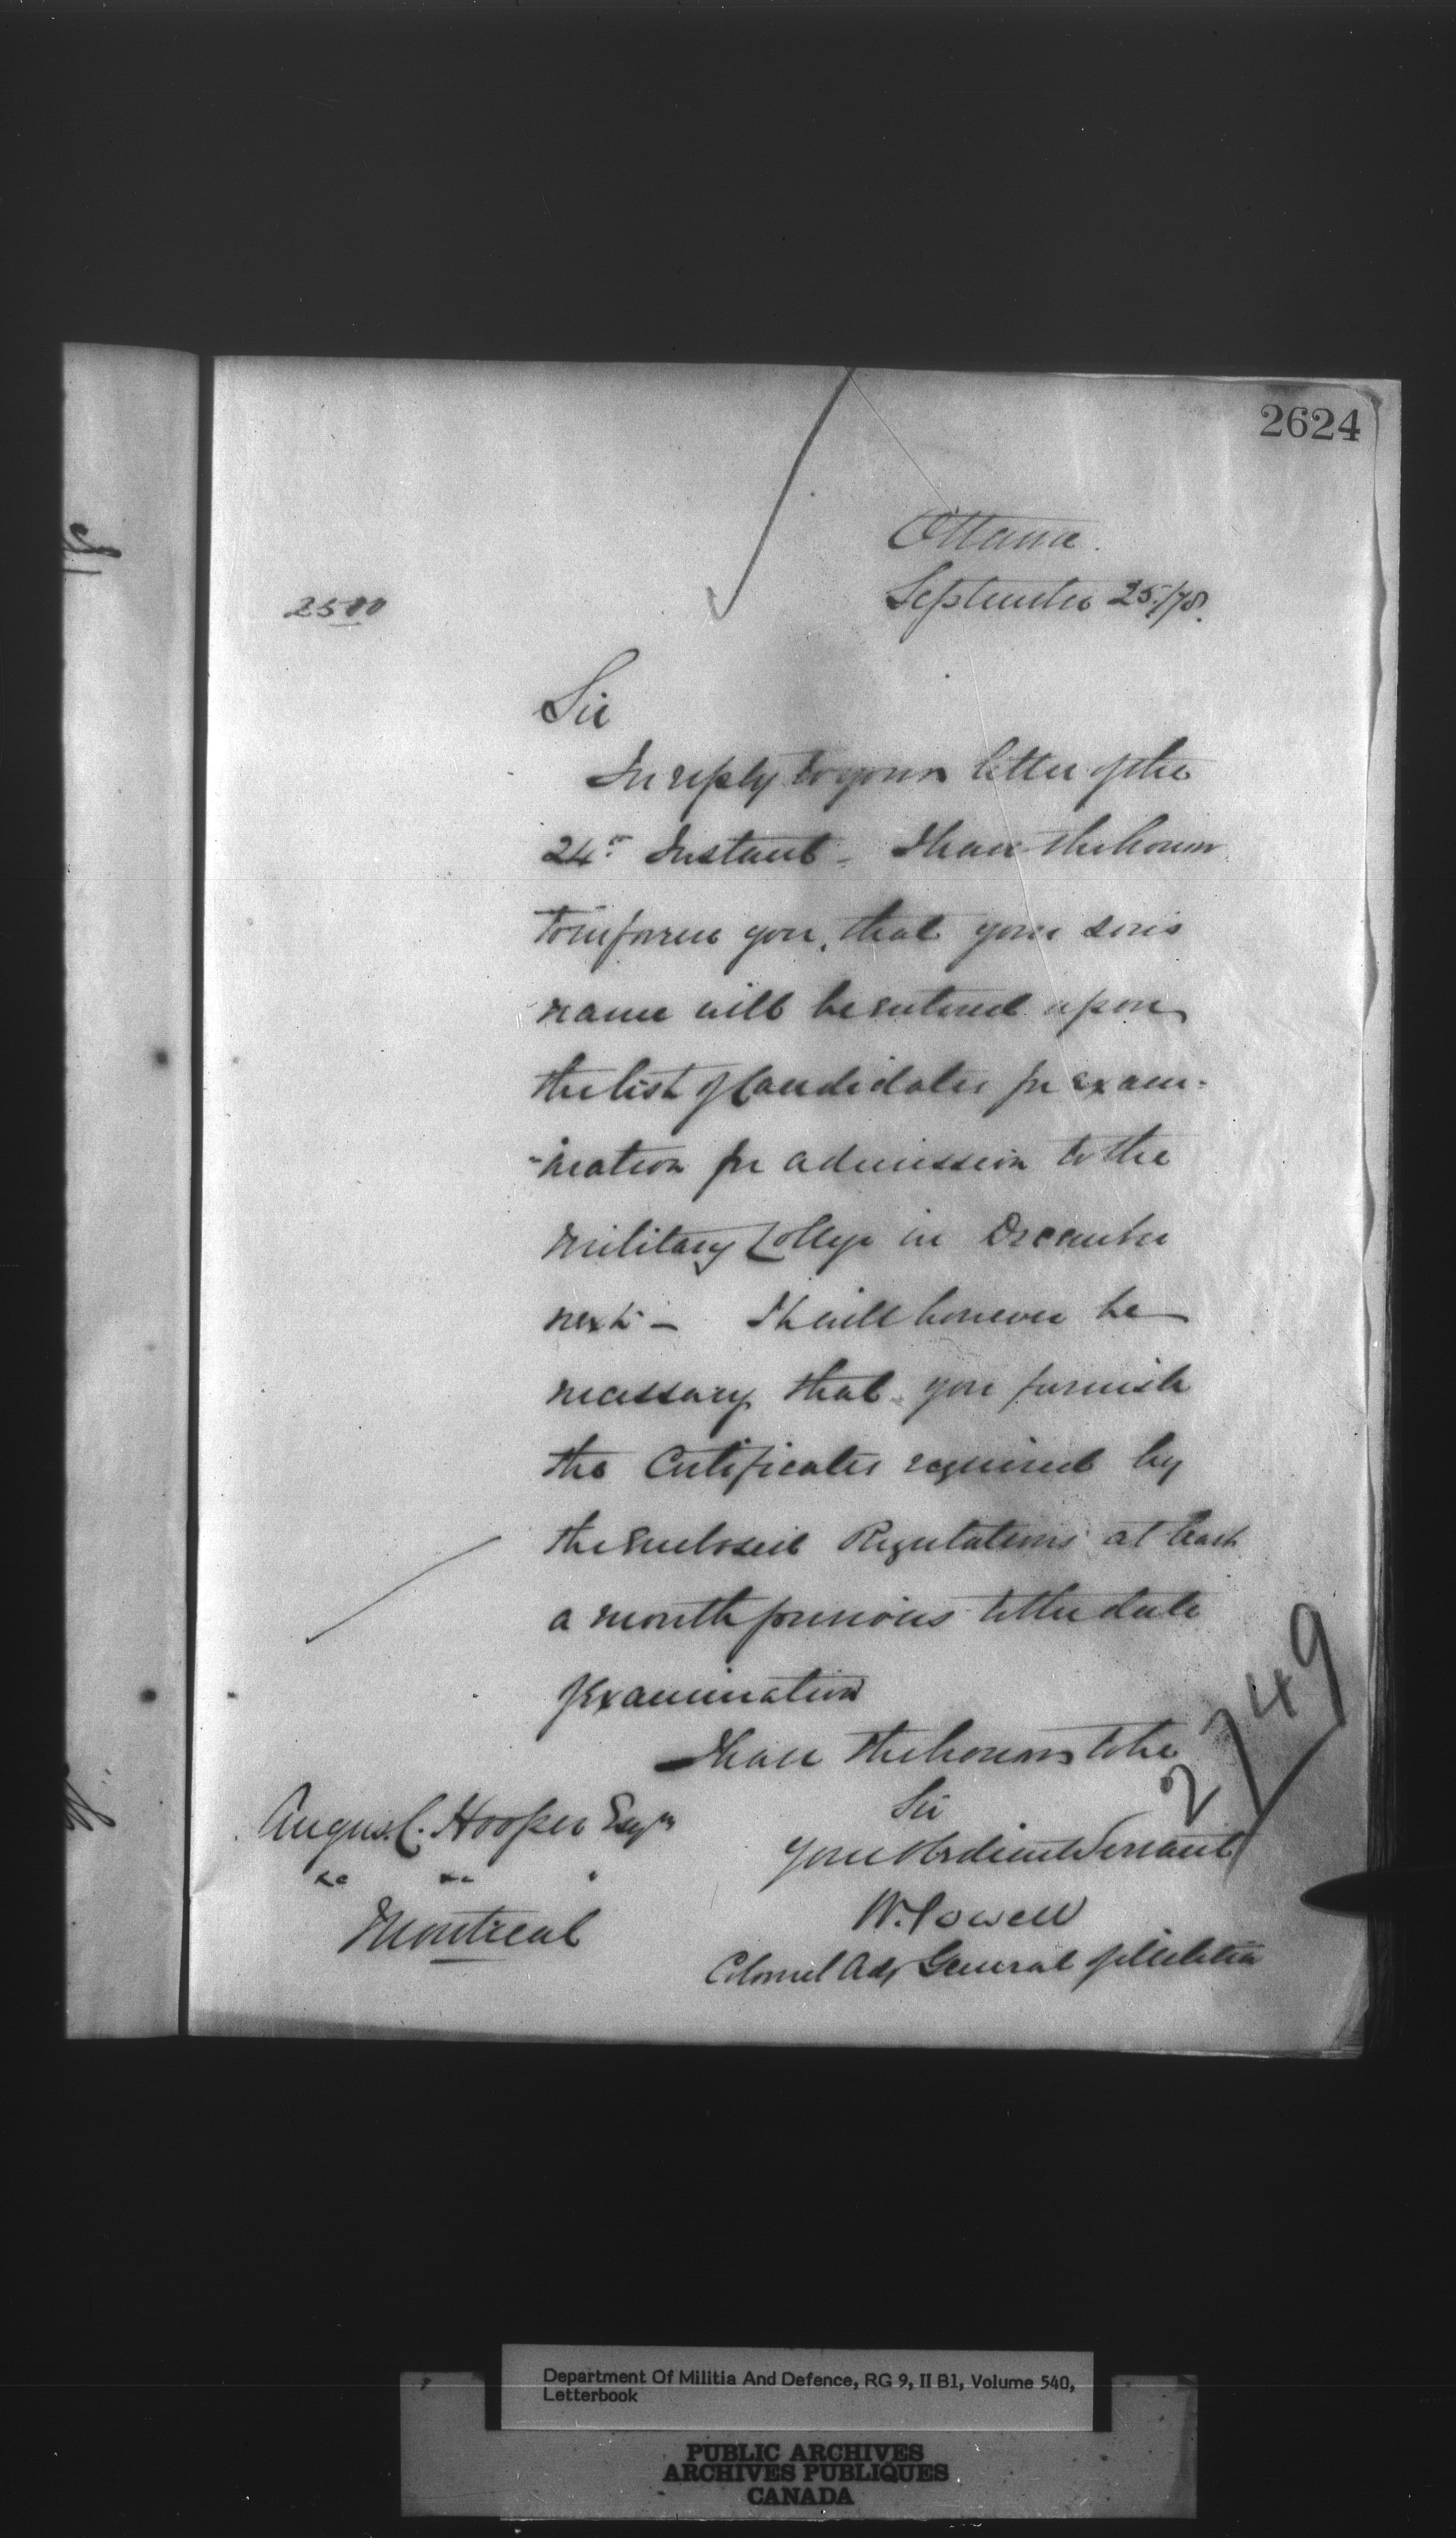 2624
Ottawa
September 25./78.
2500
Sir
In reply to your letter of the
24th Instant - I have the honour
to inform you, that your son's
name will be entered upon
the list of Candidates for exam-
-ination for admission to the
Military College in December
next - It will however be
necessary that you furnish
the Certificates required by
the enclosed Regulations at least
a month previous to the date
of Examination
I have the honour to be
Sir
Your Obedient Servant
W. Powell
Colonel Adj General of Militia
Angus. C. Hooper Esqre
&c &c
Montreal
2749
Department Of Militia And Defence, RG 9, II B1, Volume 540,
Letterbook
PUBLIC ARCHIVES
ARCHIVES PUBLIQUES
CANADA